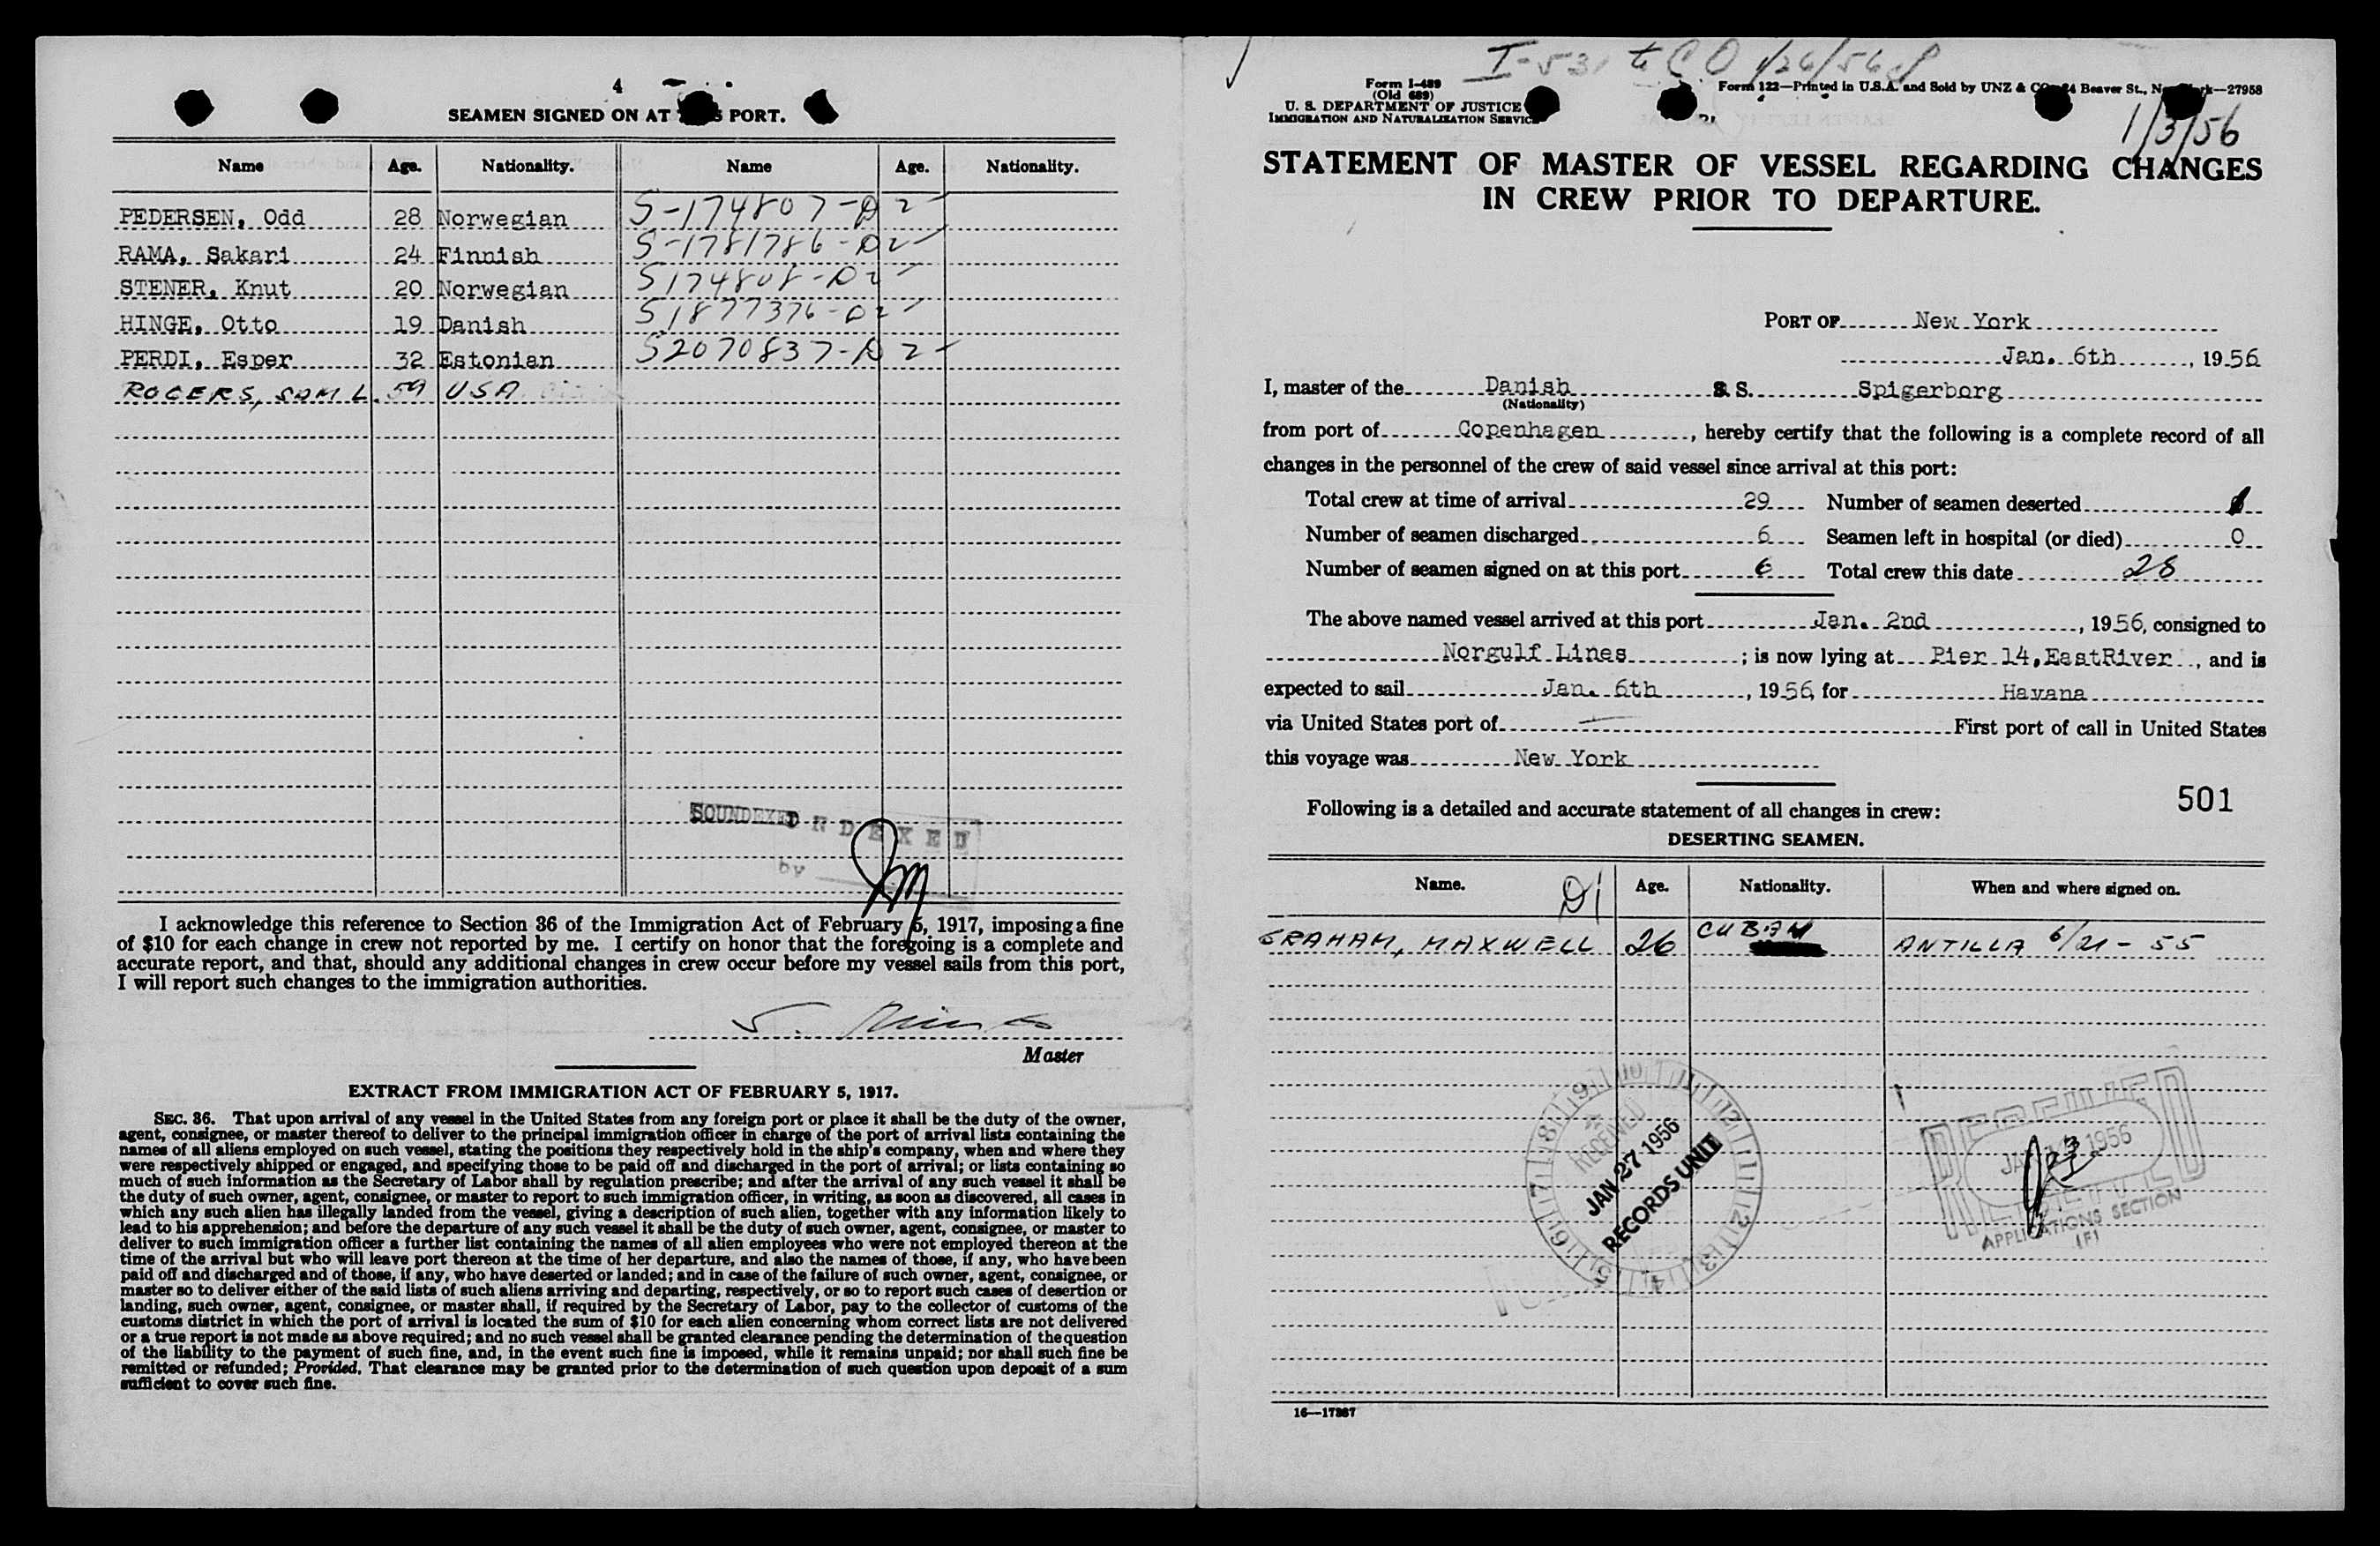 4
SEAMEN SIGNED ON AT PORT.
Name Age. Nationality. Name Age. Nationality.
PEDERSEN, Odd 28 Norwegian S-174807-D2
RAMA, Sakari 24 Finnish S-1781786-D2
STENER, Knut 20 Norwegian S174808-D2
HINGE, Otto 19 Danish S1877376-D2
PERDI, Esper 32 Estonian S2070837-D2
ROGERS, SAM L. 59 USA
SOUNDEXED INDEXED
by
I acknowledge this reference to Section 36 of the Immigration Act of February 5, 1917, imposing a fine
of $10 for each change in crew not reported by me. I certify on honor that the foregoing is a complete and
accurate report, and that, should any additional changes in crew occur before my vessel sails from this port,
I will report such changes to the immigration authorities.
Master
EXTRACT FROM IMMIGRATION ACT OF FEBRUARY 5, 1917.
SEC. 36. That upon arrival of any vessel in the United States from any foreign port or place it shall be the duty of the owner,
agent, consignee, or master thereof to deliver to the principal immigration officer in charge of the port of arrival lists containing the
names of all aliens employed on such vessel, stating the positions they respectively hold in the ship's company, when and where they
were respectively shipped or engaged, and specifying those to be paid off and discharged in the port of arrival; or lists containing so
much of such information as the Secretary of Labor shall by regulation prescribe; and after the arrival of any such vessel it shall be
the duty of such owner, agent, consignee, or master to report to such immigration officer, in writing, as soon as discovered, all cases in
which any such alien has illegally landed from the vessel, giving a description of such alien, together with any information likely to
lead to his apprehension; and before the departure of any such vessel it shall be the duty of such owner, agent, consignee, or master to
deliver to such immigration officer a further list containing the names of all alien employees who were not employed thereon at the
time of the arrival but who will leave port thereon at the time of her departure, and also the names of those, if any, who have been
paid off and discharged and of those, if any, who have deserted or landed; and in case of the failure of such owner, agent, consignee, or
master so to deliver either of the said lists of such aliens arriving and departing, respectively, or so to report such cases of desertion or
landing, such owner, agent, consignee, or master shall, if required by the Secretary of Labor, pay to the collector of customs of the
customs district in which the port of arrival is located the sum of $10 for each alien concerning whom correct lists are not delivered
or a true report is not made as above required; and no such vessel shall be granted clearance pending the determination of the question
of the liability to the payment of such fine, and, in the event such fine is imposed, while it remains unpaid; nor shall such fine be
remitted or refunded; Provided, That clearance may be granted prior to the determination of such question upon deposit of a sum
sufficient to cover such fine.
I-531 to CO 1/26/56
Form I-489
(Old 689)
U. S. DEPARTMENT OF JUSTICE
IMMIGRATION AND NATURALIZATION SERVICE
Form 122—Printed in U.S.A. and Sold by UNZ & CO., 24 Beaver St., New York—27958
1/3/56
STATEMENT OF MASTER OF VESSEL REGARDING CHANGES
IN CREW PRIOR TO DEPARTURE.
PORT OF New York
Jan. 6th, 1956
I, master of the Danish S. S. Spigerborg
(Nationality)
from port of Copenhagen, hereby certify that the following is a complete record of all
changes in the personnel of the crew of said vessel since arrival at this port:
Total crew at time of arrival 29 Number of seamen deserted 1
Number of seamen discharged 6 Seamen left in hospital (or died) 0
Number of seamen signed on at this port 6 Total crew this date 28
The above named vessel arrived at this port Jan. 2nd, 1956, consigned to
Norgulf Lines; is now lying at Pier 14, EastRiver, and is
expected to sail Jan. 6th, 1956, for Havana
via United States port of — First port of call in United States
this voyage was New York
501
Following is a detailed and accurate statement of all changes in crew:
DESERTING SEAMEN.
Name. D1 Age. Nationality. When and where signed on.
GRAHAM, MAXWELL 26 CUBAN ANTILLA 6/21-55
RECEIVED
JAN 27 1956
RECORDS UNIT
1956
RECEIVED
APPLICATIONS SECTION
(F)
16—17387